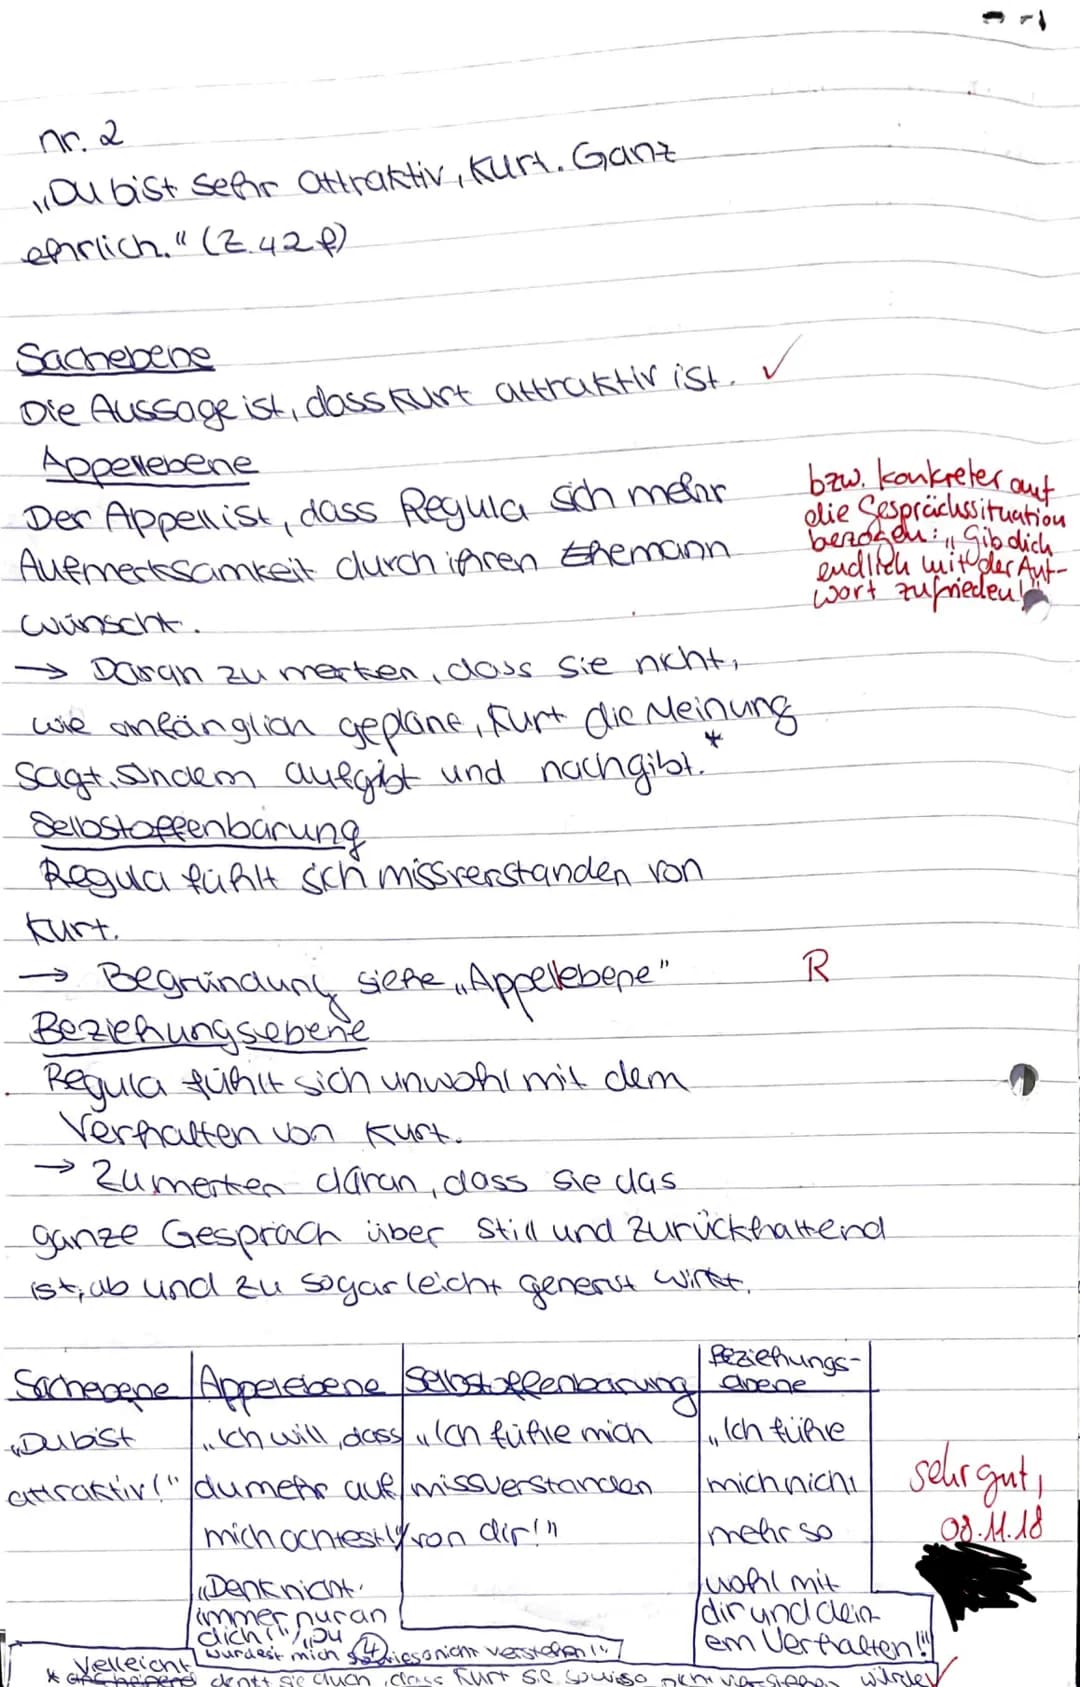 nr. 2
„Du bist sehr attraktiv, Kurt. Ganz
ehrlich." (Z.42f)
Sachebene
Die Aussage ist, dass Kurt attraktiv ist. ✓
Appellebene
Der Appell ist, dass Regula sich mehr
Aufmerksamkeit durch ihren Ehemann
wünscht.
bzw. konkreter auf
die Gesprächssituation
bezogen: „Gib dich
endlich mit der Ant-
wort zufrieden!"
→ Daran zu merken, dass sie nicht,
wie anfänglich geplant, Kurt die Meinung
sagt, sondern aufgibt und nachgibt.*
Selbstoffenbarung
Regula fühlt sich missverstanden von
Kurt.
→ Begründung siehe „Appellebene" R
Beziehungsebene
Regula fühlt sich unwohl mit dem
Verhalten von Kurt.
→ Zu merken daran, dass sie das
ganze Gespräch über still und zurückhaltend
ist, ab und zu sogar leicht genervt wirkt.
Sachebene Appelebene Selbstoffenbarung Beziehungs-
ebene
„Du bist
attraktiv!"
„Ich will, dass
du mehr auf
mich achtest!"
„Denk nicht
immer nur an
dich!"/„Du
würdest mich sowieso nicht verstehen!"
„Ich fühle mich
missverstanden
von dir!"
„Ich fühle
mich nicht
mehr so
wohl mit
dir und dein-
em Verhalten!"
sehr gut,
08.11.18
4
Velleicht
* denkt sie auch, dass Kurt sie sowieso nicht verstehen würde ✓